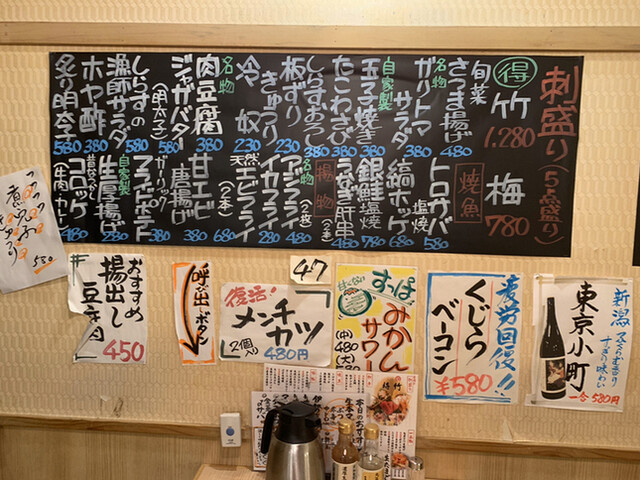 刺盛り(5点盛り)
得 竹 1.280
梅 780
旬菜
さつま揚げ 480
名物 ガリトマサラダ 380
自家製 玉子焼き 380
たこわさび 380
しらすおろし 380
板ずり
きゅうり 230
冷奴 230
名物 肉豆腐 380
ジャガバター(明太子) 380
しらすの
漁師サラダ 580
ホヤ酢 380
炙り明太子 580
焼魚
トロサバ塩焼 580
縞ホッケ 680
銀鮭塩焼 780
うなぎ肝串(2本) 480
揚物
名物 アジフライ(2枚) 480
イカフライ 280
天然エビフライ(2本) 680
甘エビ唐揚げ 380
ガーリック
フライドポテト 380
自家製 生厚揚げ 280
昔なつかし コロッケ(牛肉・カレー) 480
530
おすすめ
揚出し
豆腐
450
呼び出しボタン
復活!
メンチ
カツ
2個入り
480円
47
すっぱ
みかん
サワー
(中)480
疲労回復!!
くじら
ベーコン
¥580
新潟
すっきり味わい
東京小町
一合580円
本日のおすすめ